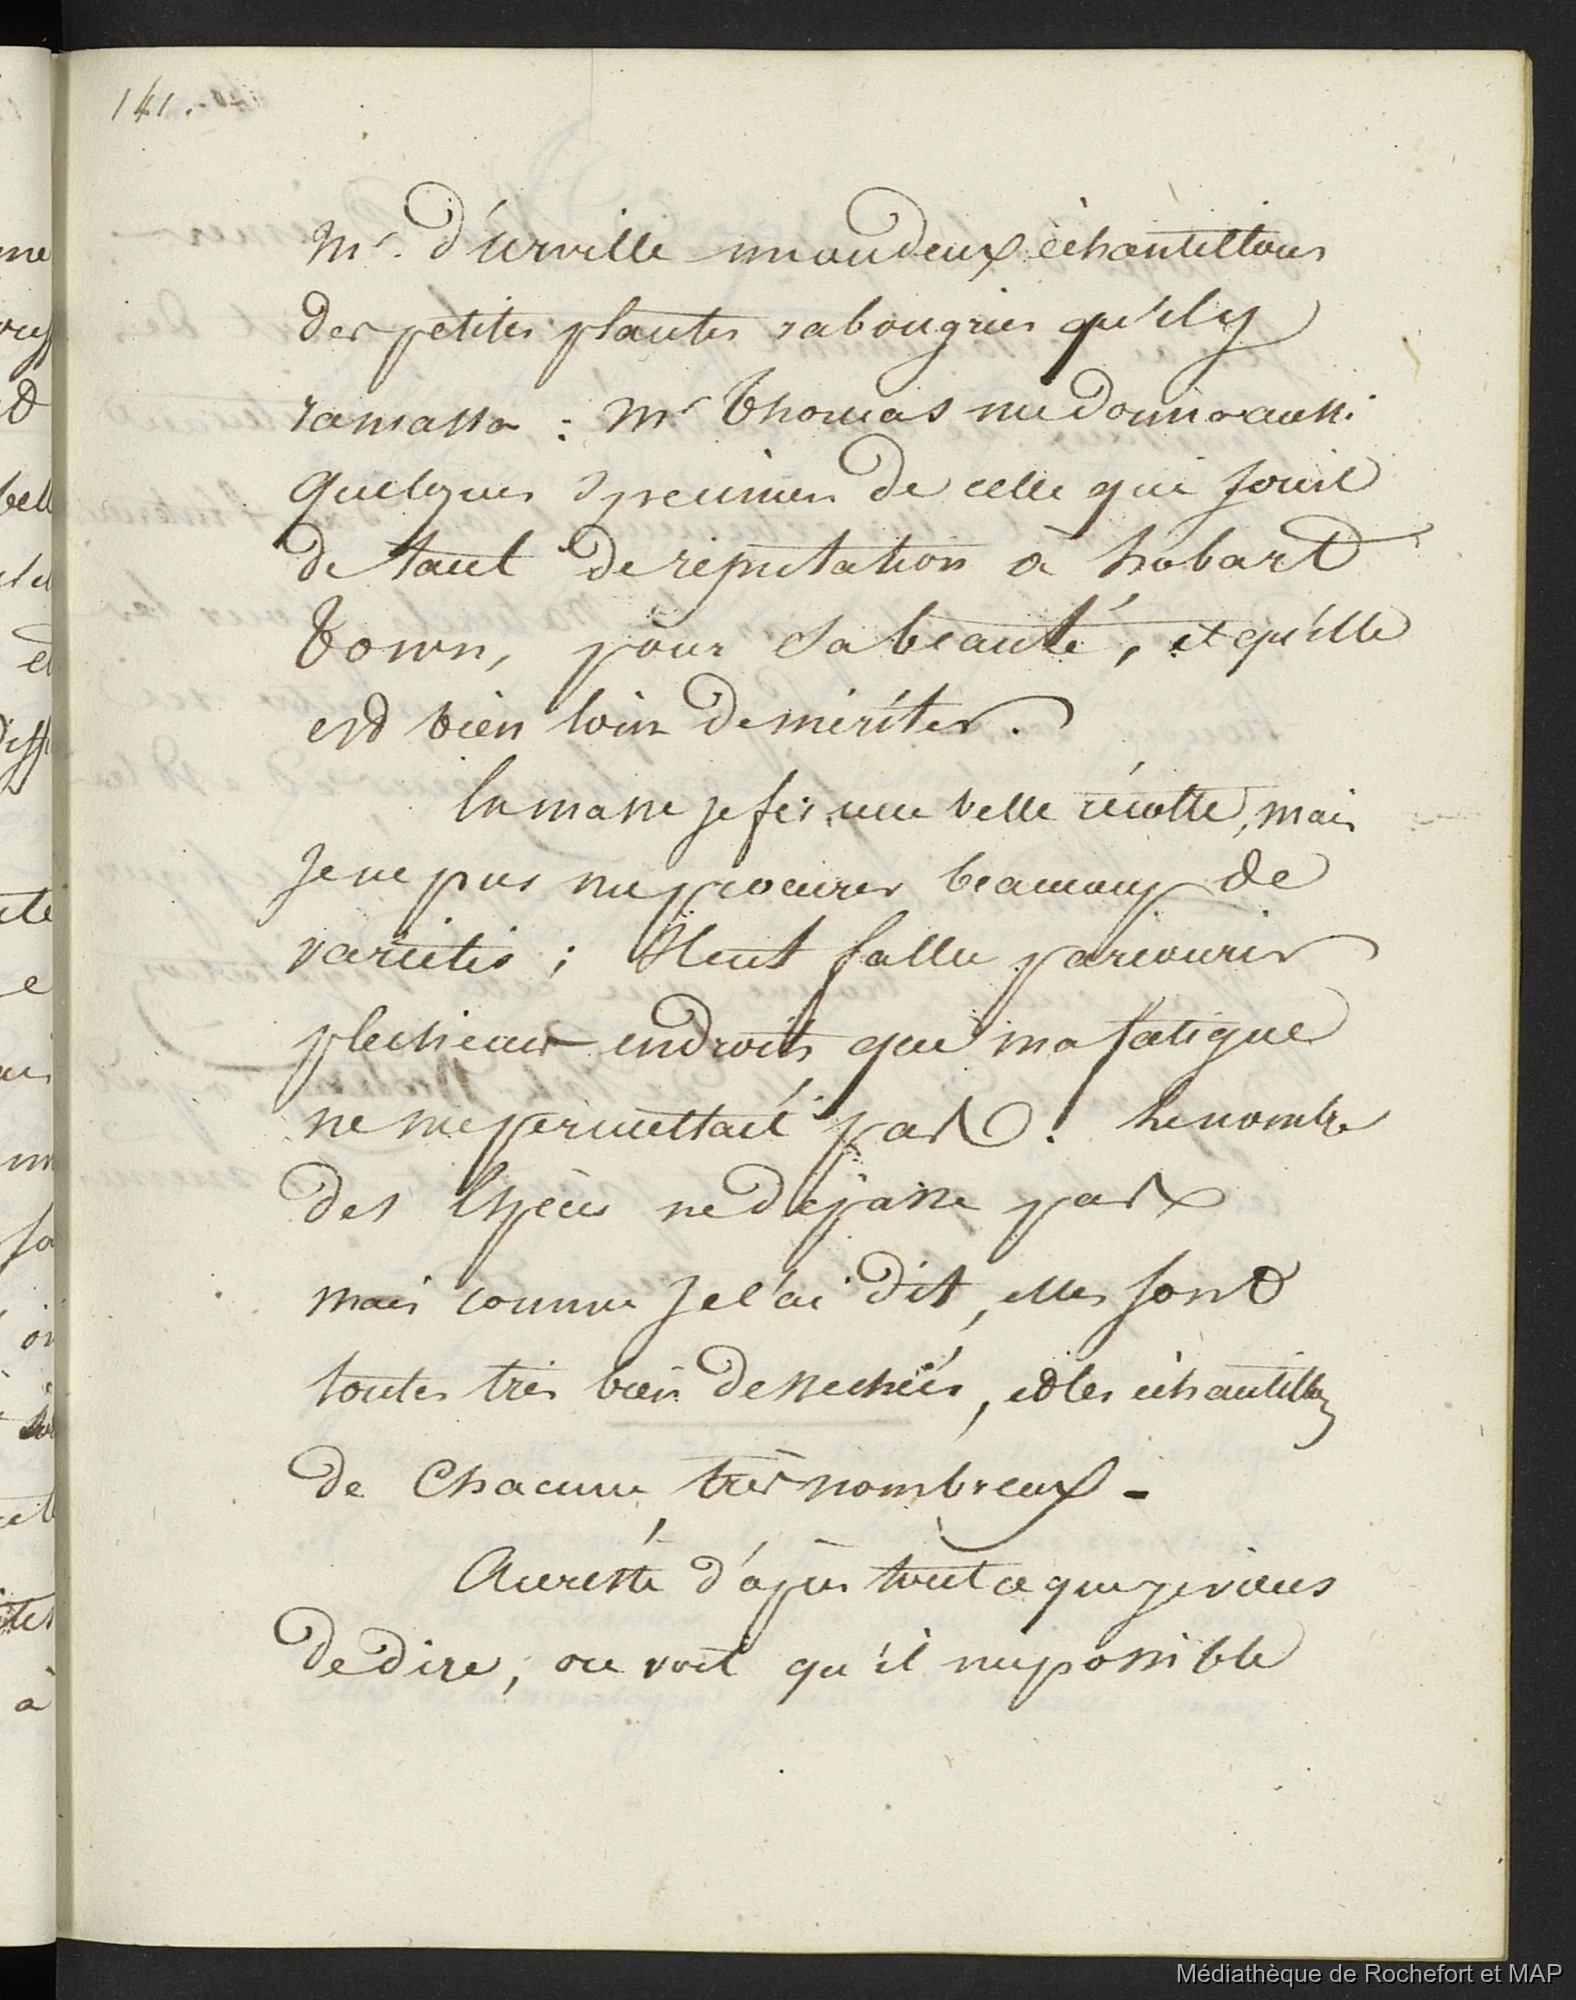 141.
Mr. d'urville un ou deux échantillons
des petites plantes rabougries qu'il y
ramassa : Mr Thomas me donna aussi
quelques specimen de celle qui jouit
de tant de réputation à hobart
Town, pour sa beauté, et qu'elle
est bien loin de mériter.
En masse je fis une belle récolte, mais
je ne pus me procurer beaucoup de
variétés ; Il eut fallu parcourir
plusieurs endroits que ma fatigue
ne me permettait pas. Le nombre
des Espèces ne dépasse pas
mais comme je l'ai dit, elles sont
toutes très bien dessechées, et les échantillons
de Chacune très nombreux -
Au reste d'après tout ce que je viens
de dire, on voit qu'il
Médiathèque de Rochefort et MAP